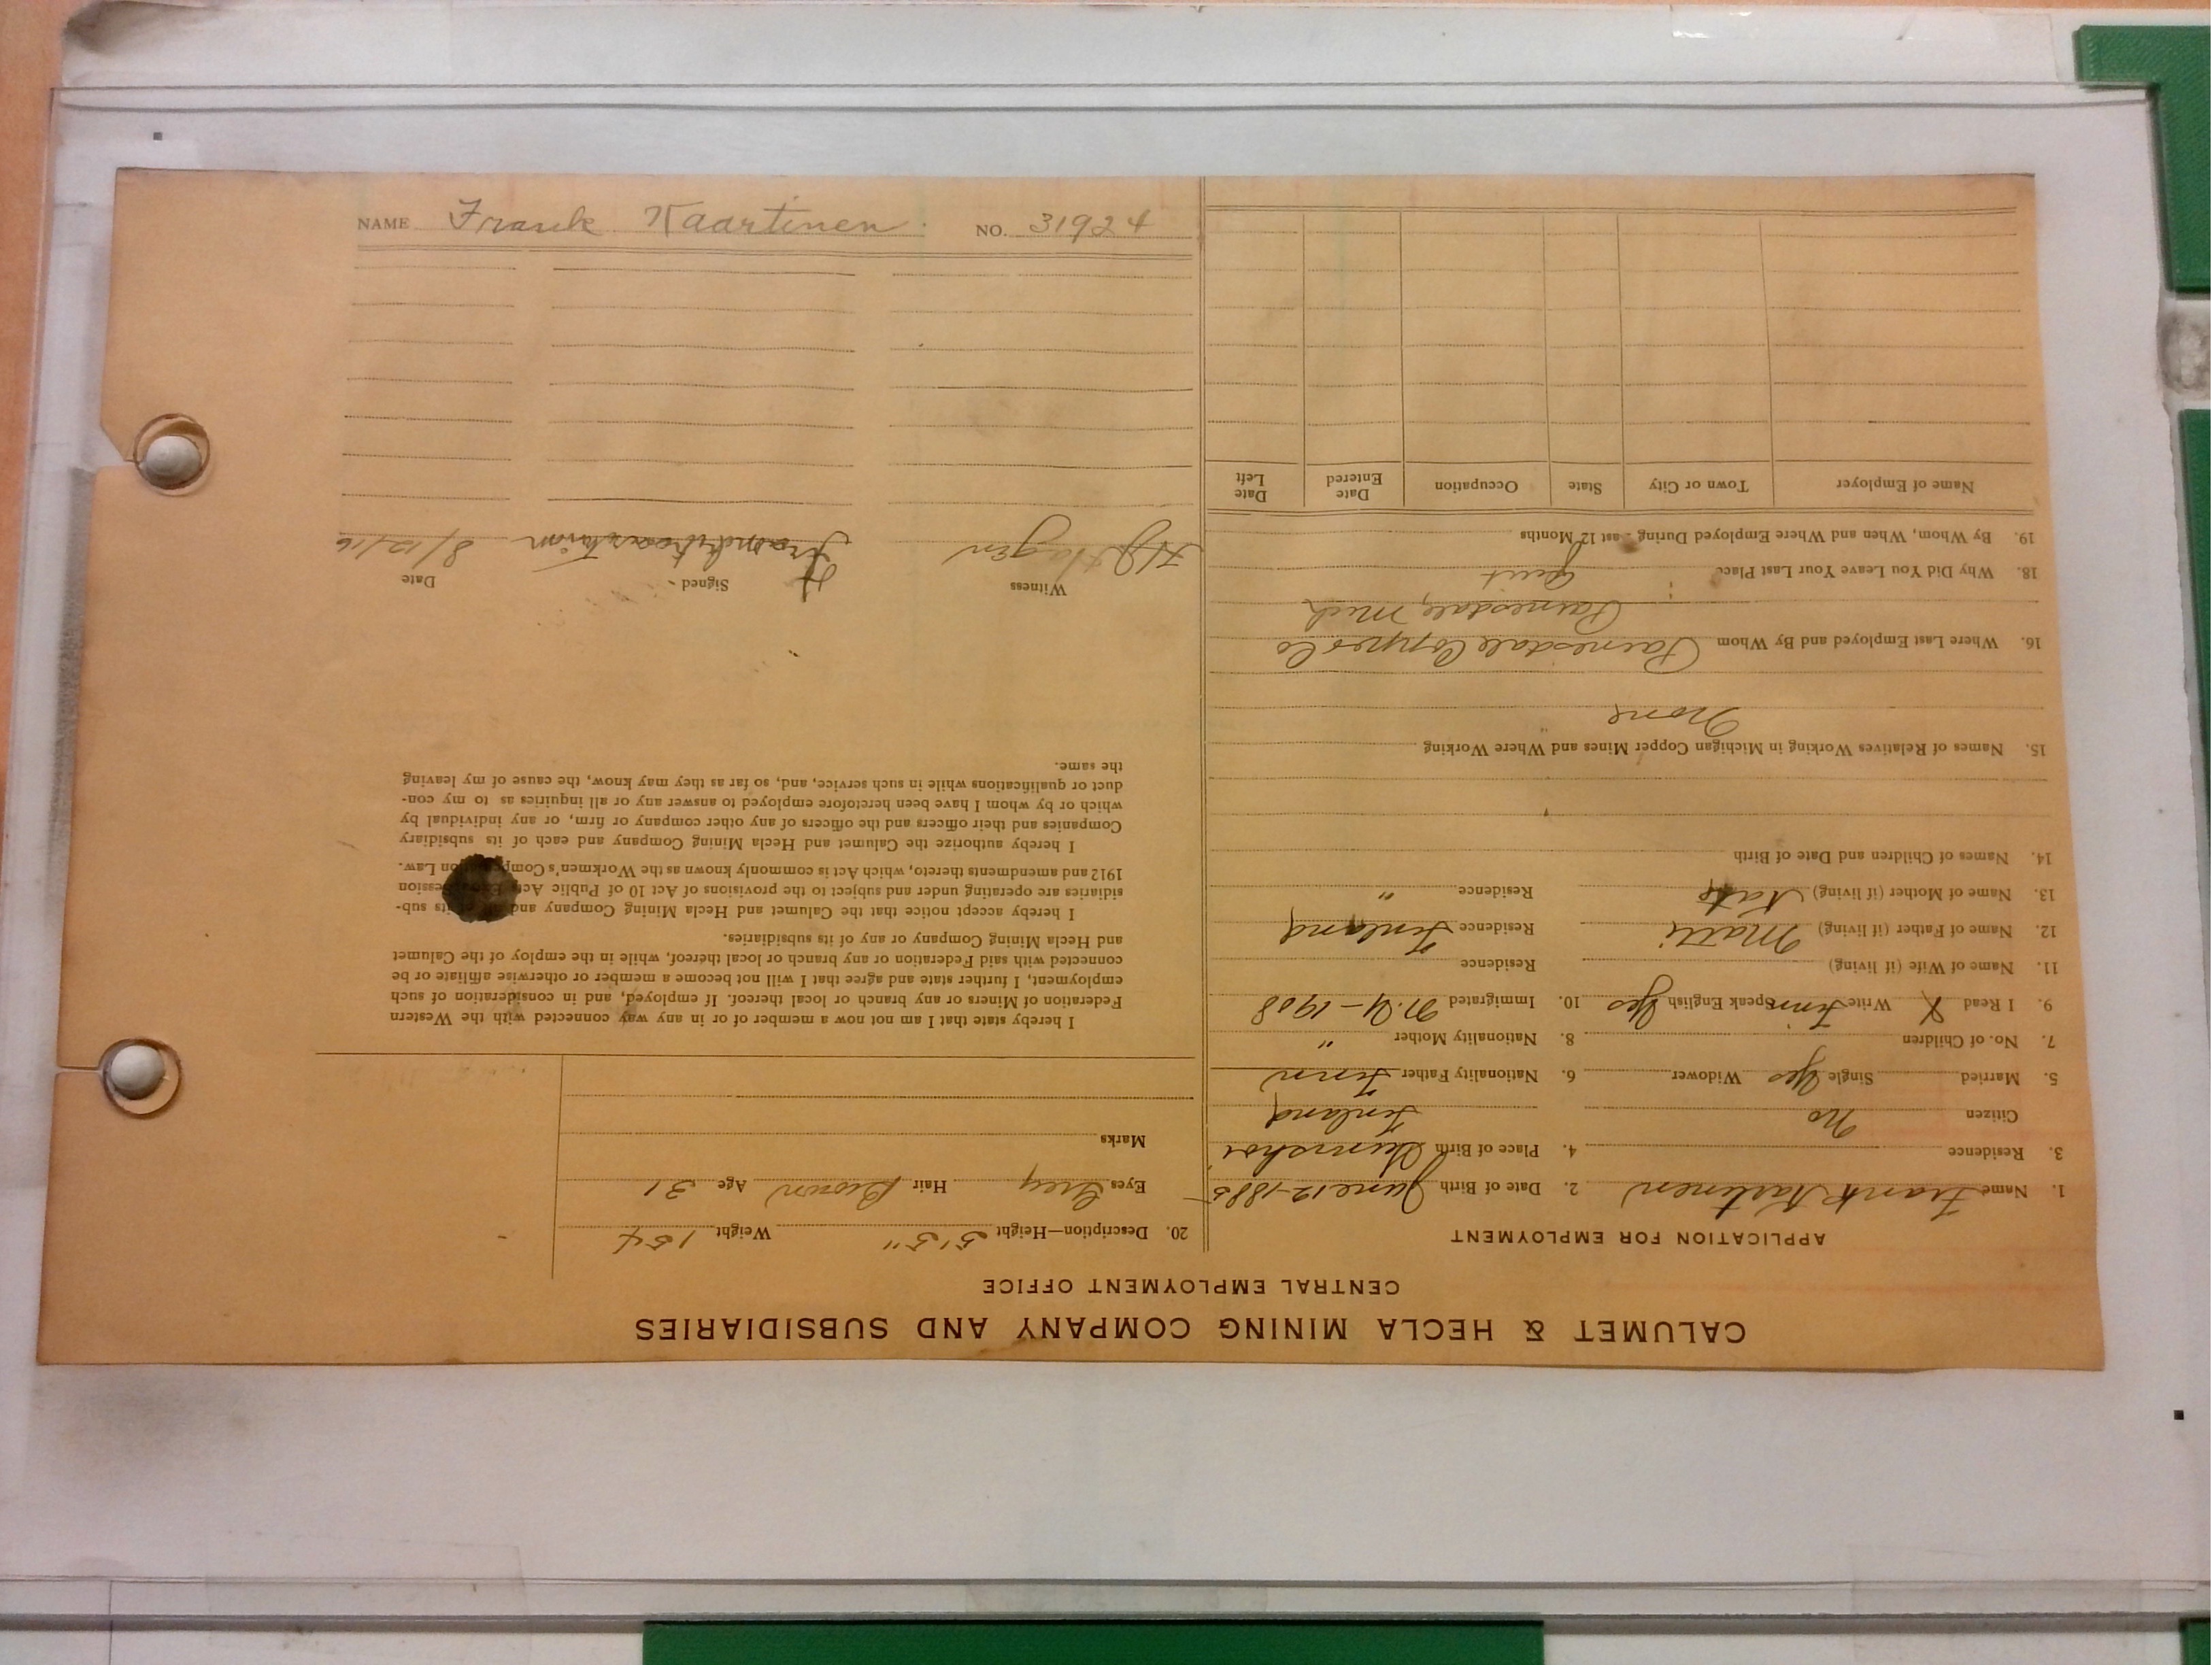 CALUMET & HECLA MINING COMPANY AND SUBSIDIARIES
CENTRAL EMPLOYMENT OFFICE
APPLICATION FOR EMPLOYMENT
1. Name Frank Kartinen 2. Date of Birth June 12-1885
3. Residence 4. Place of Birth
Citizen No Finland
5. Married Single Yes Widower 6. Nationality Father Finn
7. No. of Children 8. Nationality Mother "
9. I Read X Write Finn Speak English Yes 10. Immigrated N.Y-1908
11. Name of Wife (if living) Residence
12. Name of Father (if living) Matti Residence Finland
13. Name of Mother (if living) Residence "
14. Names of Children and Date of Birth
15. Names of Relatives Working in Michigan Copper Mines and Where Working
None
16. Where Last Employed and By Whom Painesdale Copper Co
Painesdale, Mich
18. Why Did You Leave Your Last Place Quit
19. By Whom, When and Where Employed During Last 12 Months
Name of Employer Town or City State Occupation Date Entered Date Left
20. Description—Height 5'5" Weight 154
Eyes Grey Hair Brown Age 31
Marks
I hereby state that I am not now a member of or in any way connected with the Western
Federation of Miners or any branch or local thereof. If employed, and in consideration of such
employment, I further state and agree that I will not become a member or otherwise affiliate or be
connected with said Federation or any branch or local thereof, while in the employ of the Calumet
and Hecla Mining Company or any of its subsidiaries.
I hereby accept notice that the Calumet and Hecla Mining Company and its sub-
sidiaries are operating under and subject to the provisions of Act 10 of Public Acts Session
1912 and amendments thereto, which Act is commonly known as the Workmen's Compensation Law.
I hereby authorize the Calumet and Hecla Mining Company and each of its subsidiary
Companies and their officers and the officers of any other company or firm, or any individual by
which or by whom I have been heretofore employed to answer any or all inquiries as to my con-
duct or qualifications while in such service, and, so far as they may know, the cause of my leaving
the same.
Witness Signed Date
8/12/16
NAME Frank Kaartinen. NO. 31924